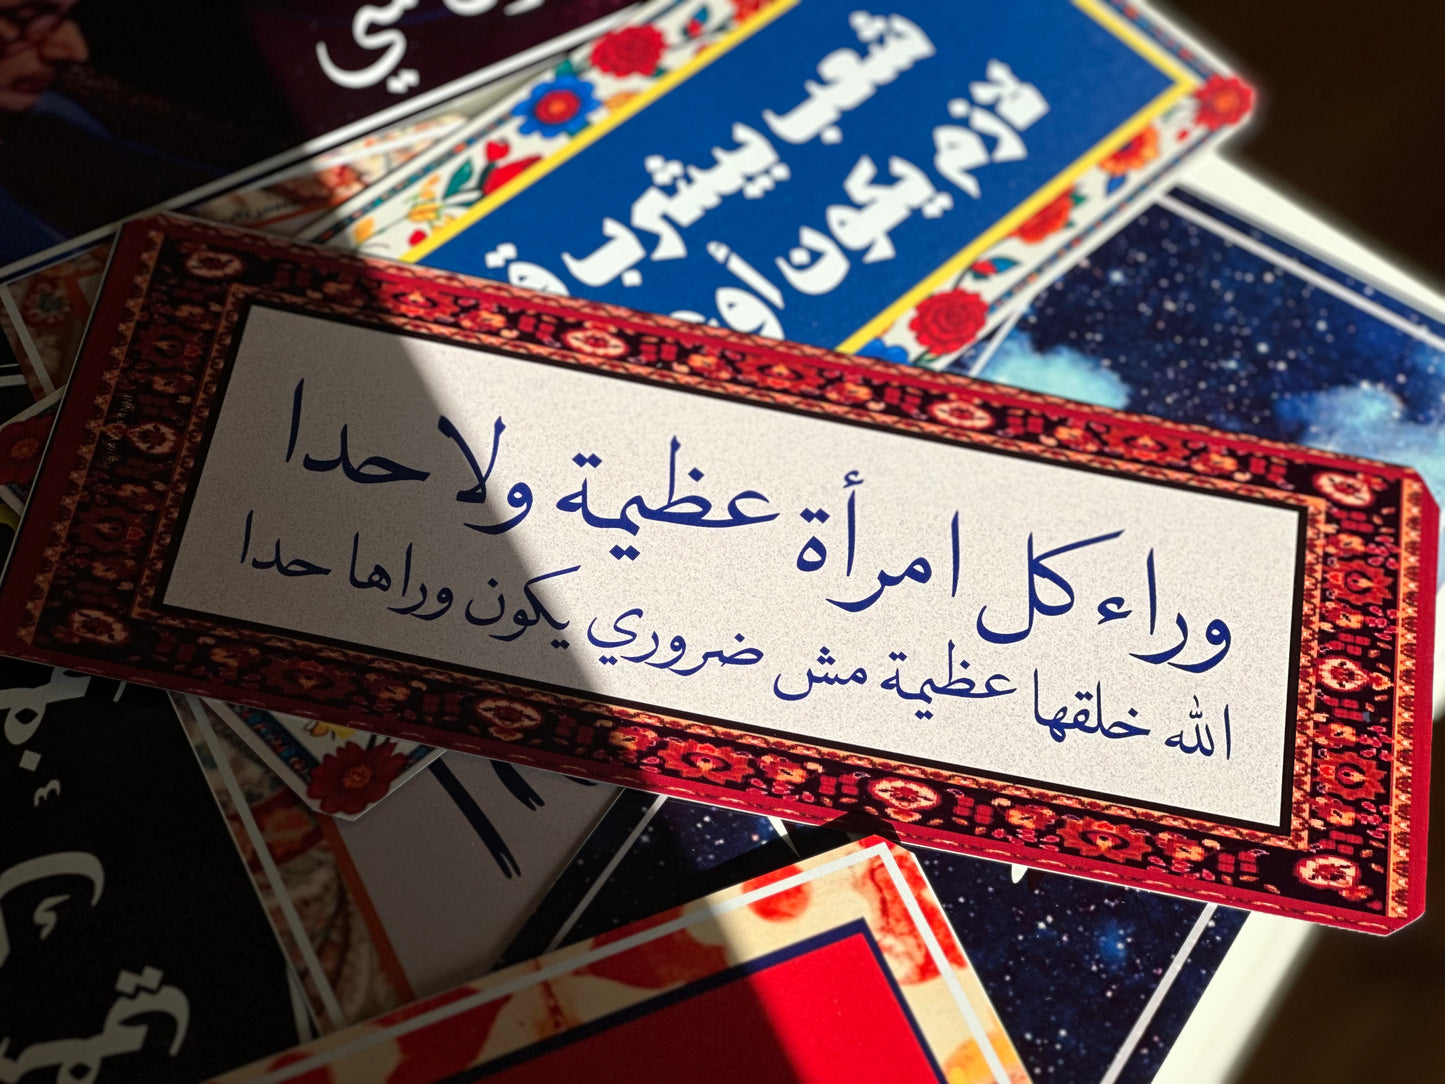 لشعب بيشرب
لازم يكون
وراء كل امرأة عظيمة ولا حدا
الله خلقها عظيمة مش ضروري يكون وراها حدا